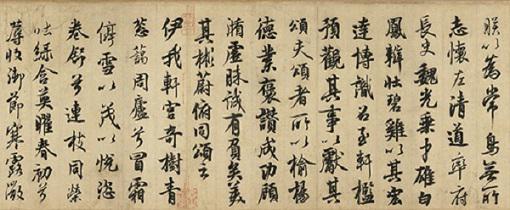 朕以為常鳥無所
志懷左清道率府
長史魏光乘才雄白
鳳辯壯碧雞以其宏
達博識召至軒楹
預觀其事以獻其
頌夫頌者所以揄揚
德業褒讚成功顧
循虛昧誠有負矣美
其彬蔚俯同頌云
伊我軒宮奇樹青
蔥藹周廬兮冒霜
停雪以茂以悅恣
卷舒兮連枝同榮
吐綠含英曜春初兮
蓐收御節寒露微